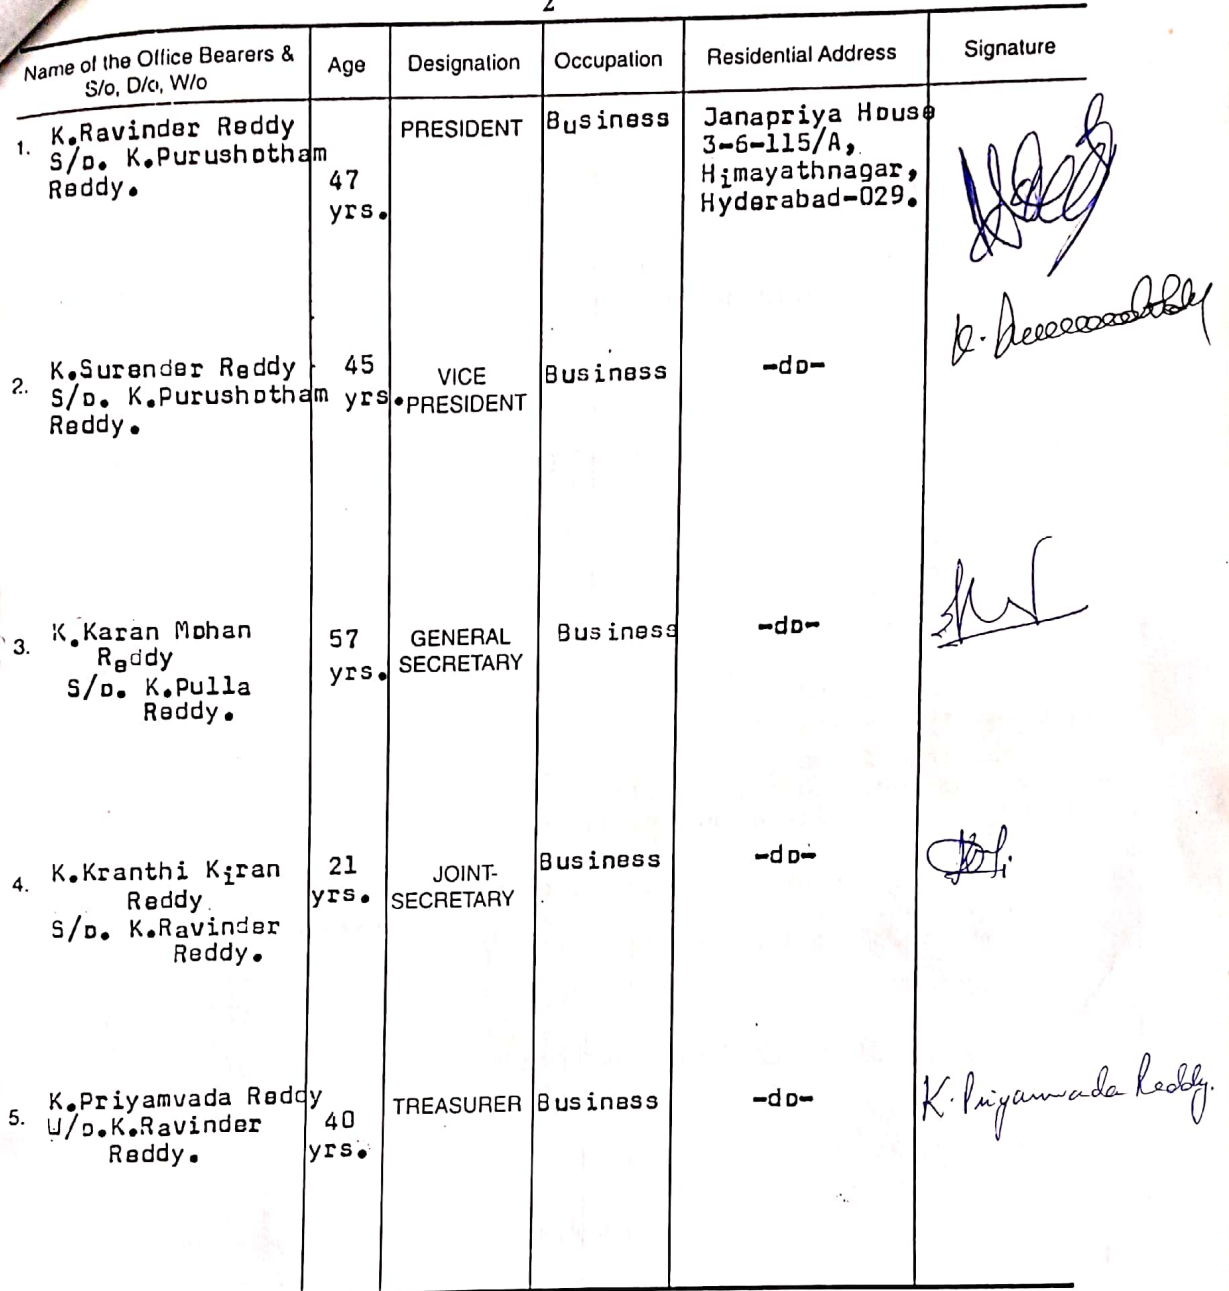 2
Name of the Office Bearers & S/o, D/o, W/o | Age | Designation | Occupation | Residential Address | Signature
1. K.Ravinder Reddy
S/o. K.Purushotham
Reddy.
47
yrs.
PRESIDENT
Business
Janapriya House
3-6-115/A,
Himayathnagar,
Hyderabad-029.
2. K.Surender Reddy
S/o. K.Purushotham
Reddy.
45
yrs.
VICE
PRESIDENT
Business
-do-
3. K.Karan Mohan
Reddy
S/o. K.Pulla
Reddy.
57
yrs.
GENERAL
SECRETARY
Business
-do-
4. K.Kranthi Kiran
Reddy
S/o. K.Ravinder
Reddy.
21
yrs.
JOINT-
SECRETARY
Business
-do-
5. K.Priyamvada Reddy
W/o.K.Ravinder
Reddy.
40
yrs.
TREASURER
Business
-do-
K. Priyamvada Reddy.